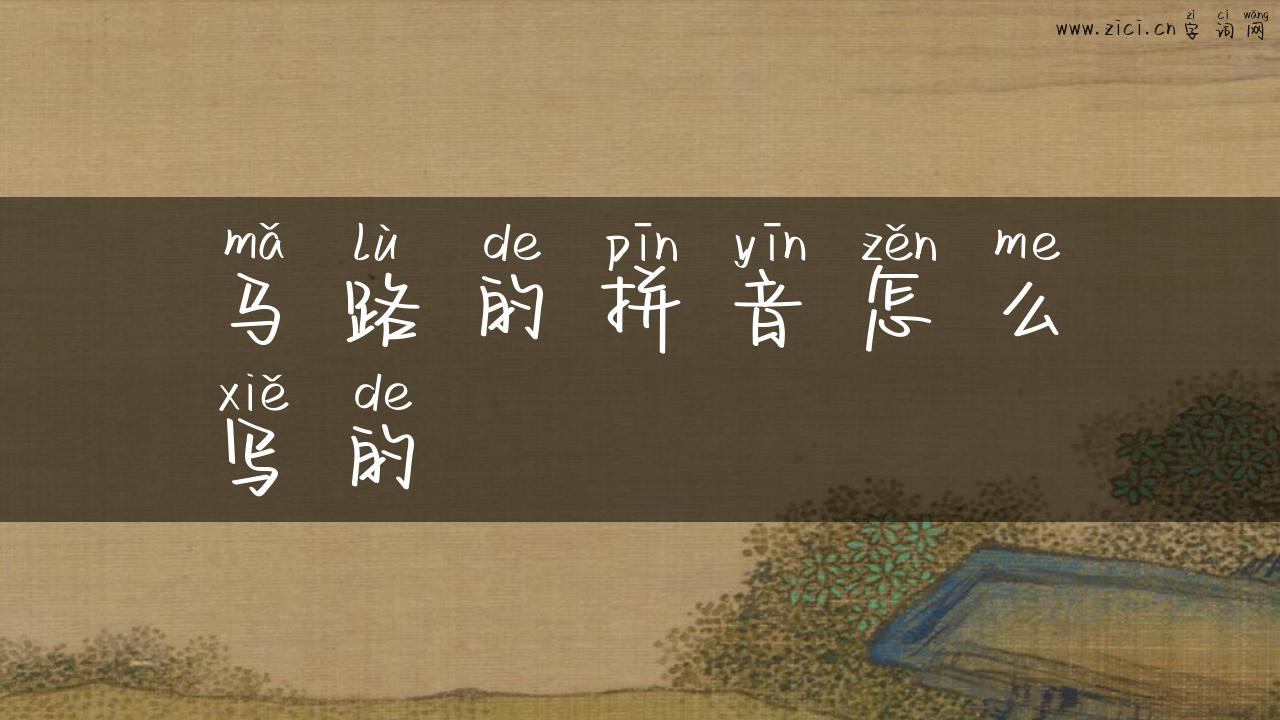 zì cí wǎng
www.zici.cn 字词网
mǎ lù de pīn yīn zěn me
马路的拼音怎么
xiě de
写的